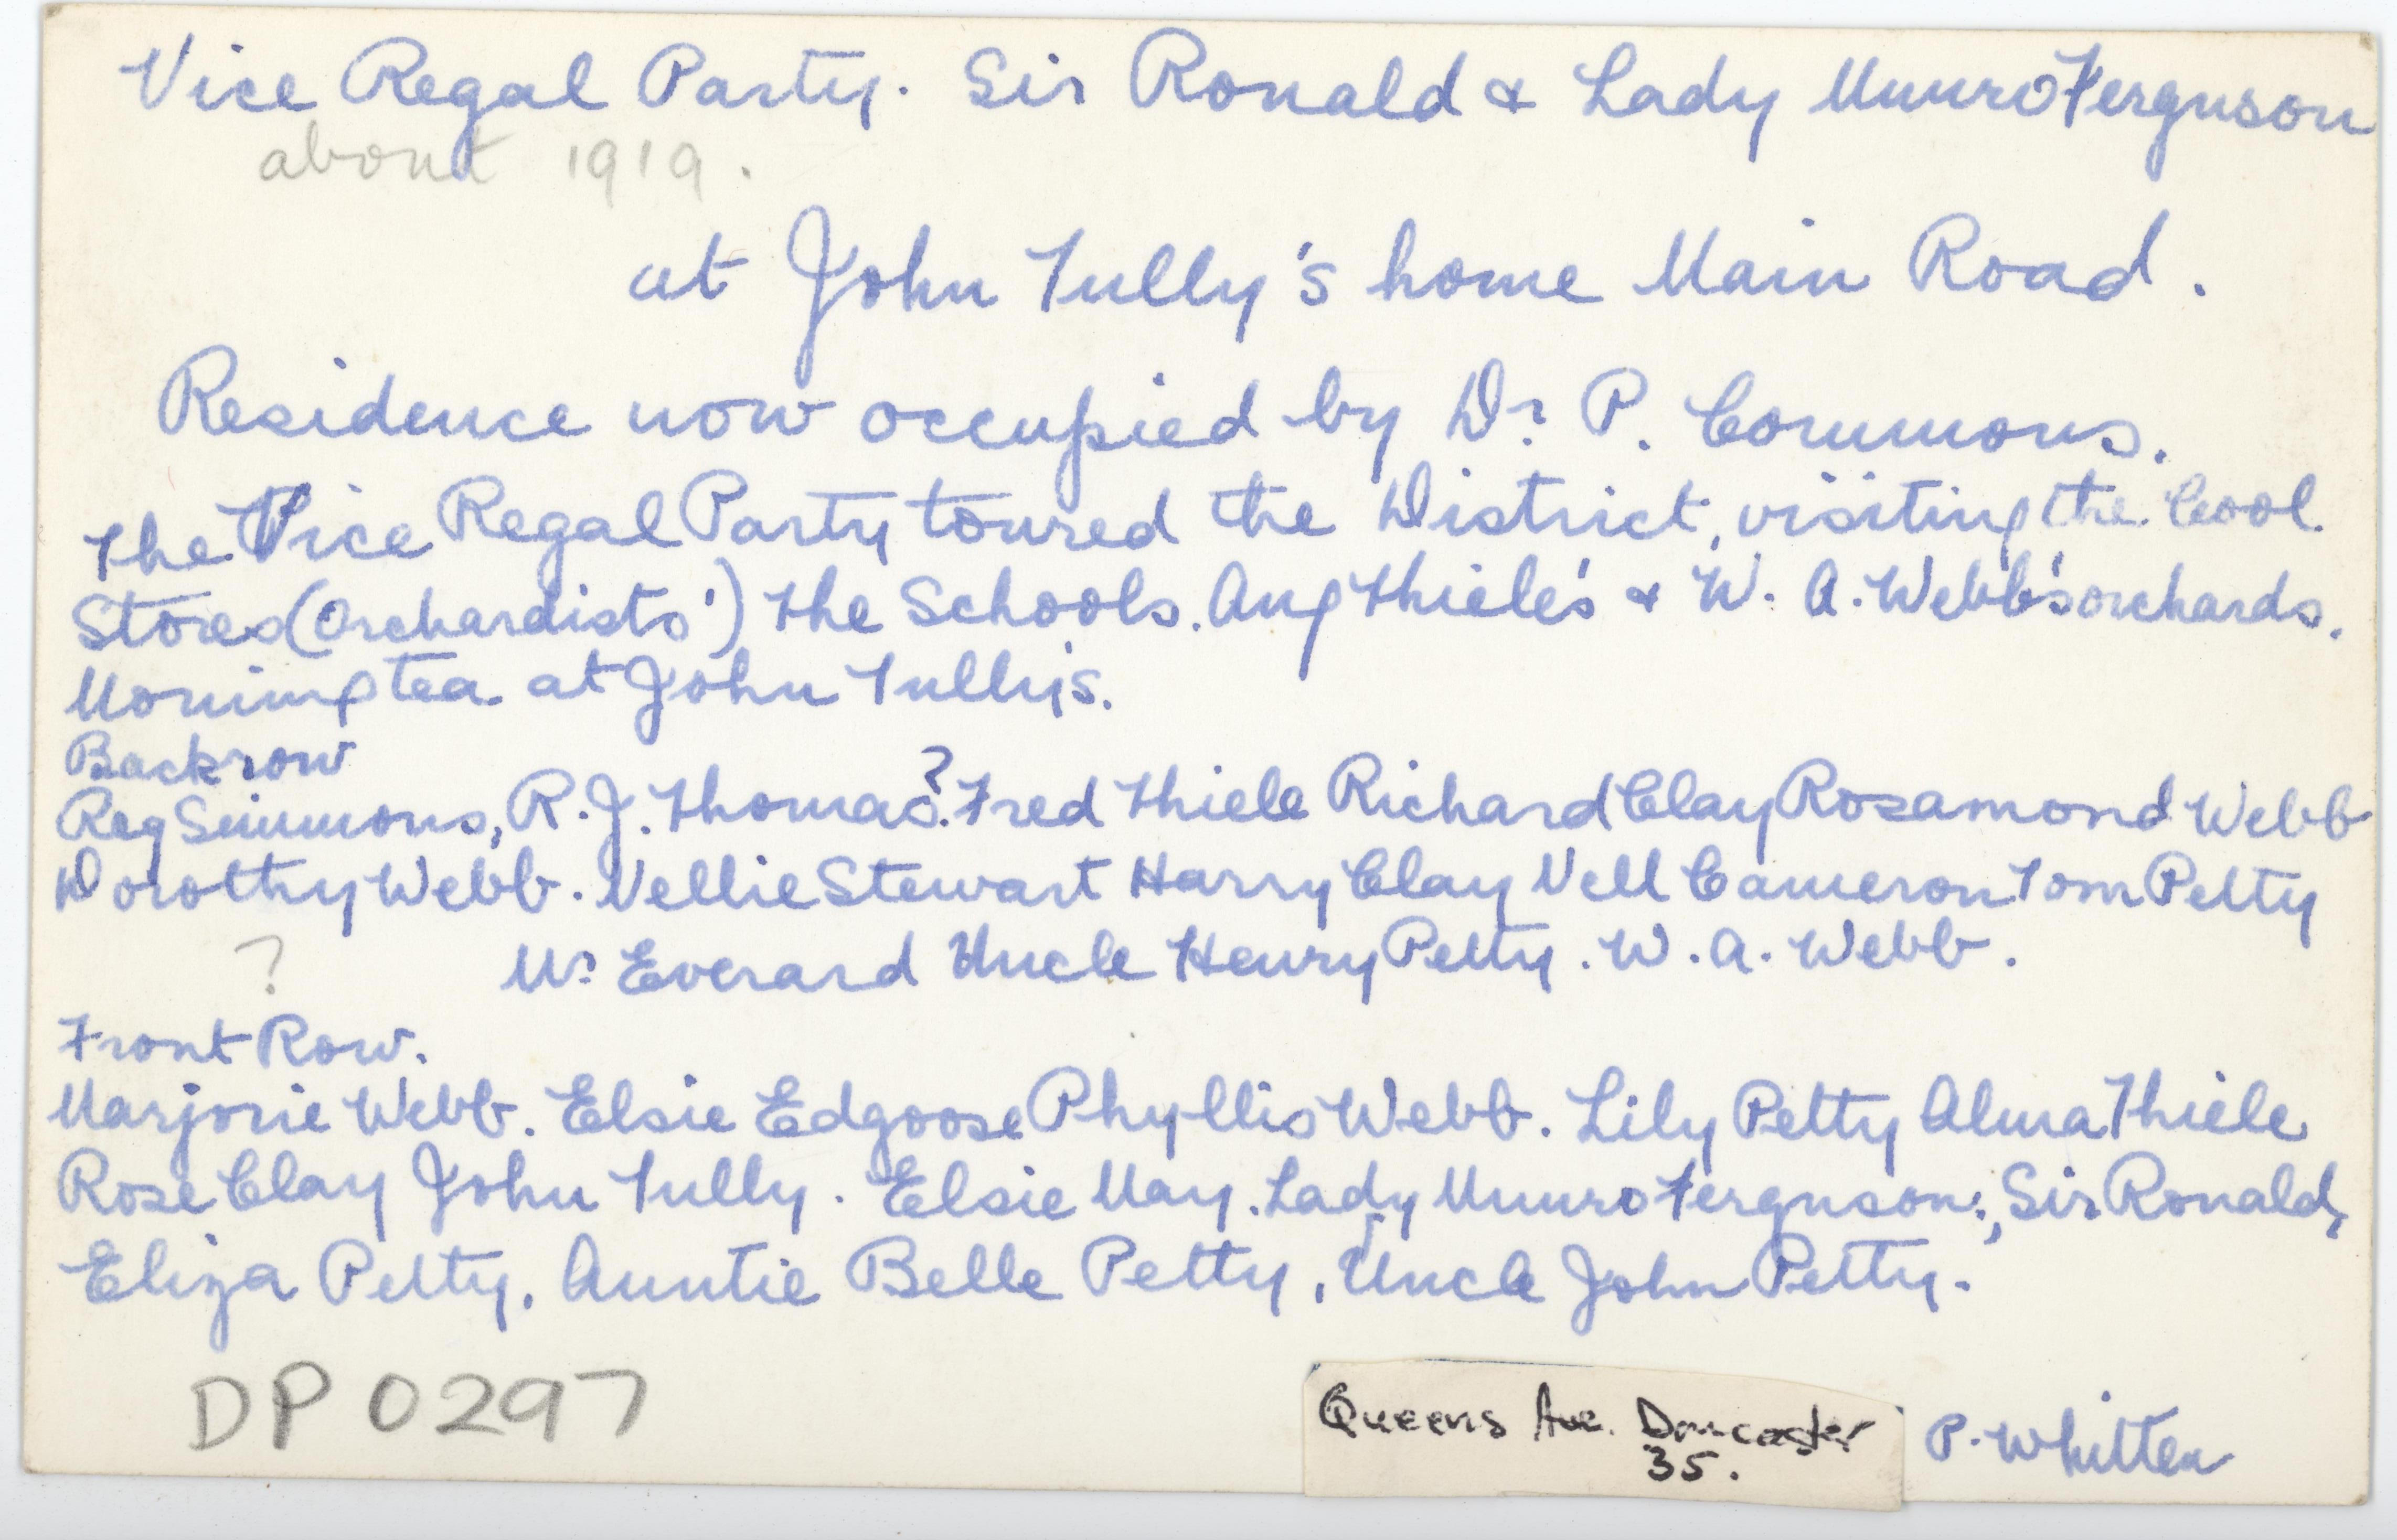 Vice Regal Party. Sir Ronald & Lady Munro Ferguson
about 1919.
at John Tully's home Main Road.
Residence now occupied by Dr. P. Commons.
The Vice Regal Party toured the District, visiting the Cool
Stores (Orchardists') the Schools. Aug Thiele's & W. A. Webb's orchards.
Morning tea at John Tully's.
Back row
Reg Simmons, R. J. Thomas?. Fred Thiele Richard Clay Rosamond Webb
Dorothy Webb. Nellie Stewart Harry Clay Nell Cameron Tom Petty
? Mr Everard Uncle Henry Petty. W. A. Webb.
Front Row.
Marjorie Webb. Elsie Edgoose Phyllis Webb. Lily Petty Alma Thiele
Rose Clay John Tully. Elsie May. Lady Munro Ferguson; Sir Ronald,
Eliza Petty. Auntie Belle Petty, Uncle John Petty.
DP 0297
Queens Ave. Doncaster
35.
P. Whitten